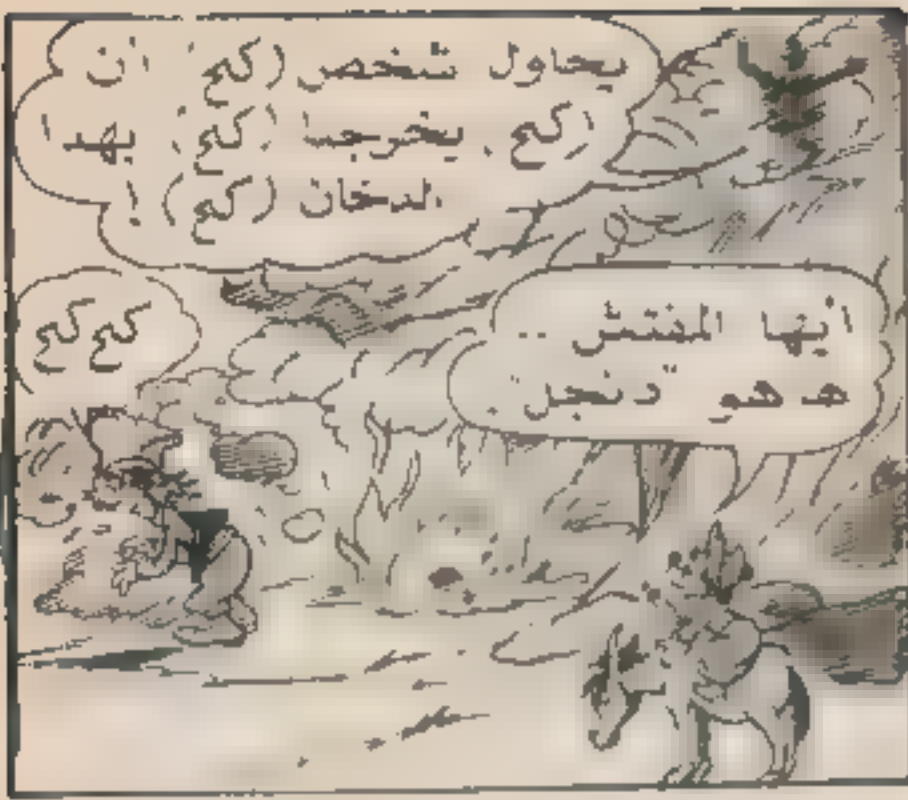 يحاول شخص (كح) ان
(كح) يخرجنا (كح) بهذا
الدخان (كح) !
ايها المفتش ..
هذا هو "دنجل" .
كح كح